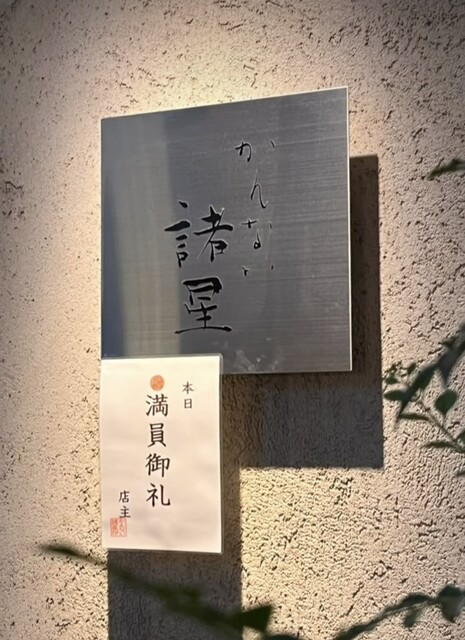 かんない
諸星
本日
満員御礼
店主